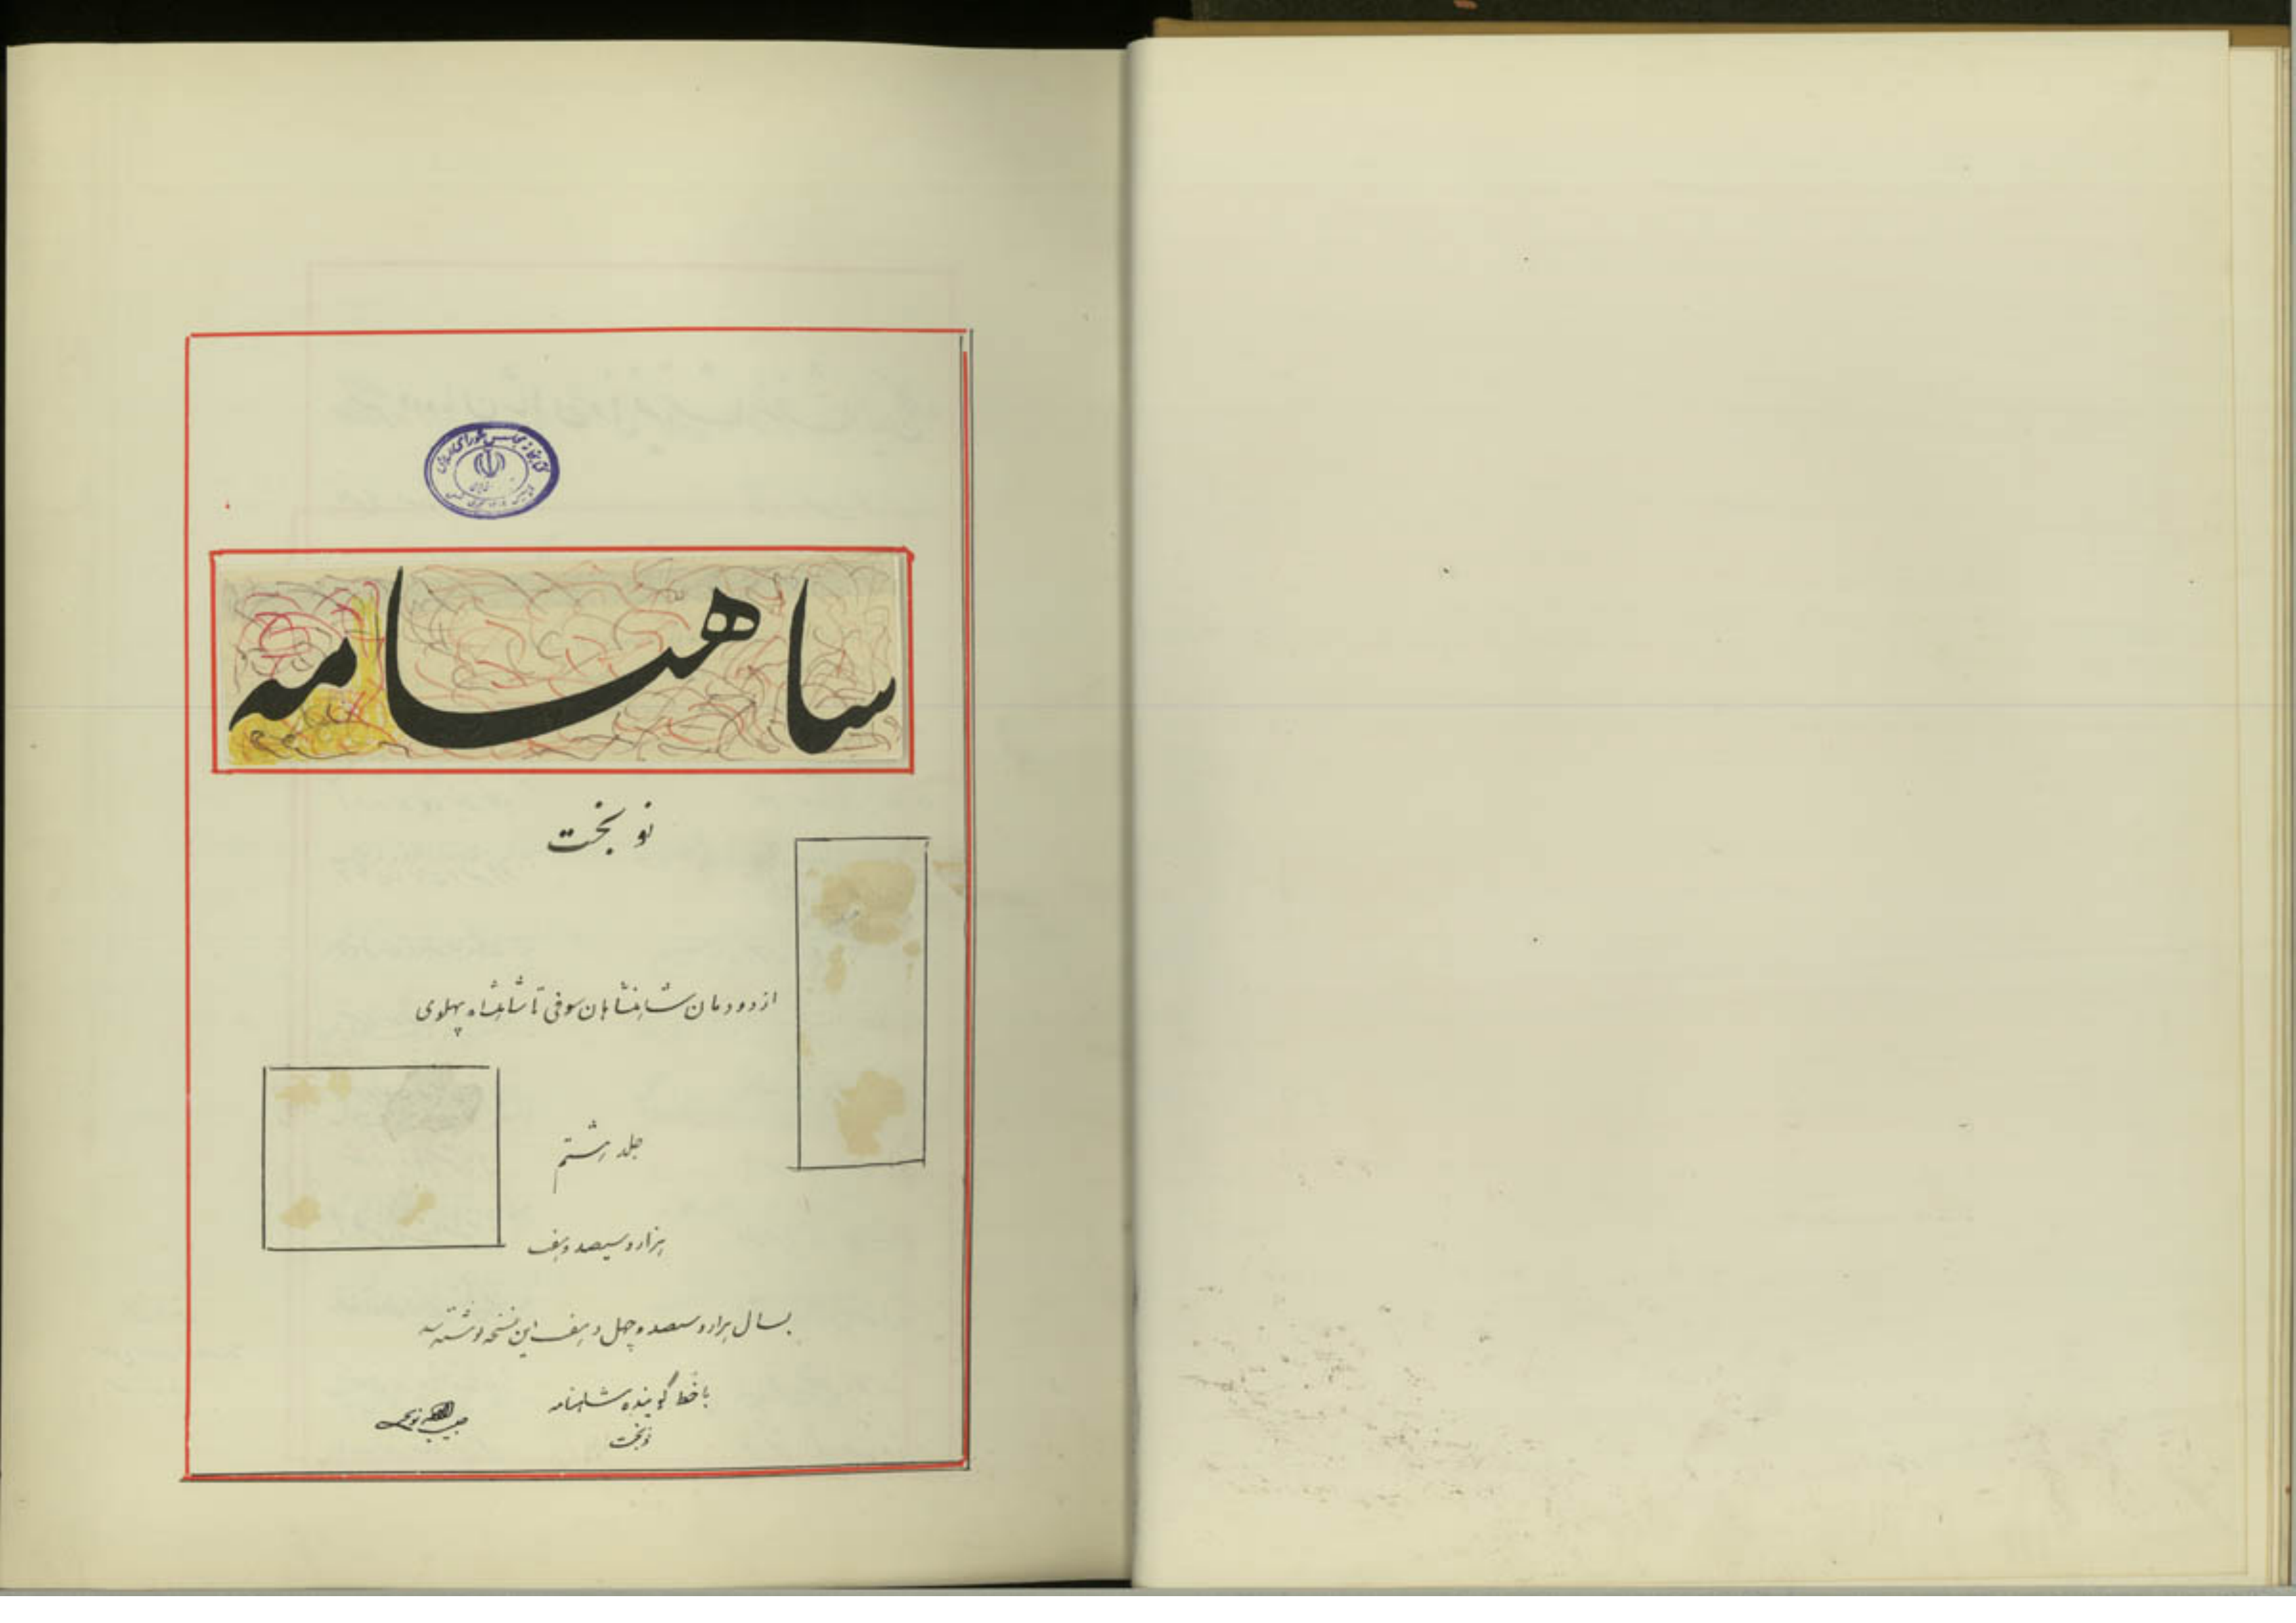 کتابخانه مجلس شورای اسلامی
ساهنامه
نوبخت
از دودمان شاهنشاهان سوفی تا شاهنشاه پهلوی
جلد هشتم
هزار و سیصد و هفت
بسال هزار و سیصد و چهل و هفت این نسخه نوشته شد
با خط گوینده شاهنامه
نوبخت
حبیب الله نوبخت